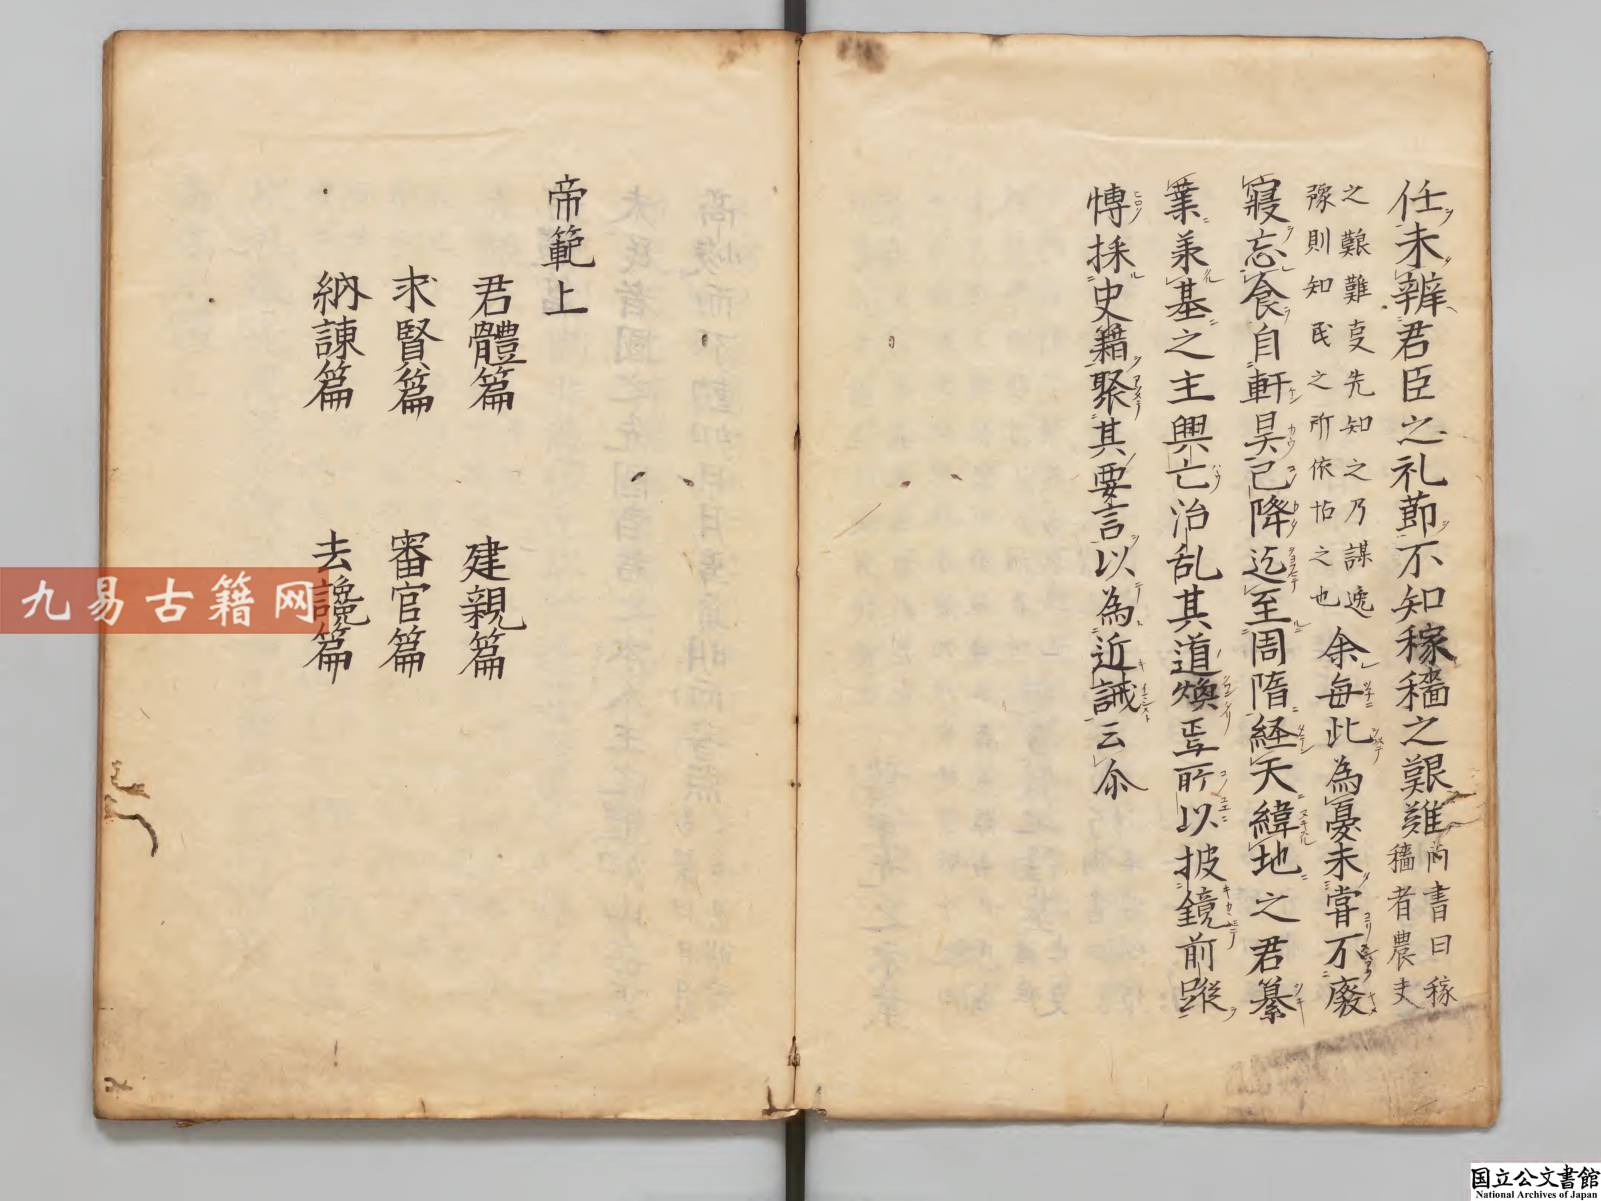 任未辨君臣之礼節不知稼穡之艱難尚書曰稼
穡者農夫
之艱難㕝先知之乃謀逸
豫則知民之所依怙之也余每此為憂未甞不廢
寢忘食自軒昊已降迄至周隋経天緯地之君纂
業承基之主興亡治乱其道煥焉所以披鏡前蹤
博採史籍聚其要言以為近誡云尒
帝範上
君體篇 建親篇
求賢篇 審官篇
納諌篇 去讒篇
九易古籍网
国立公文書館
National Archives of Japan